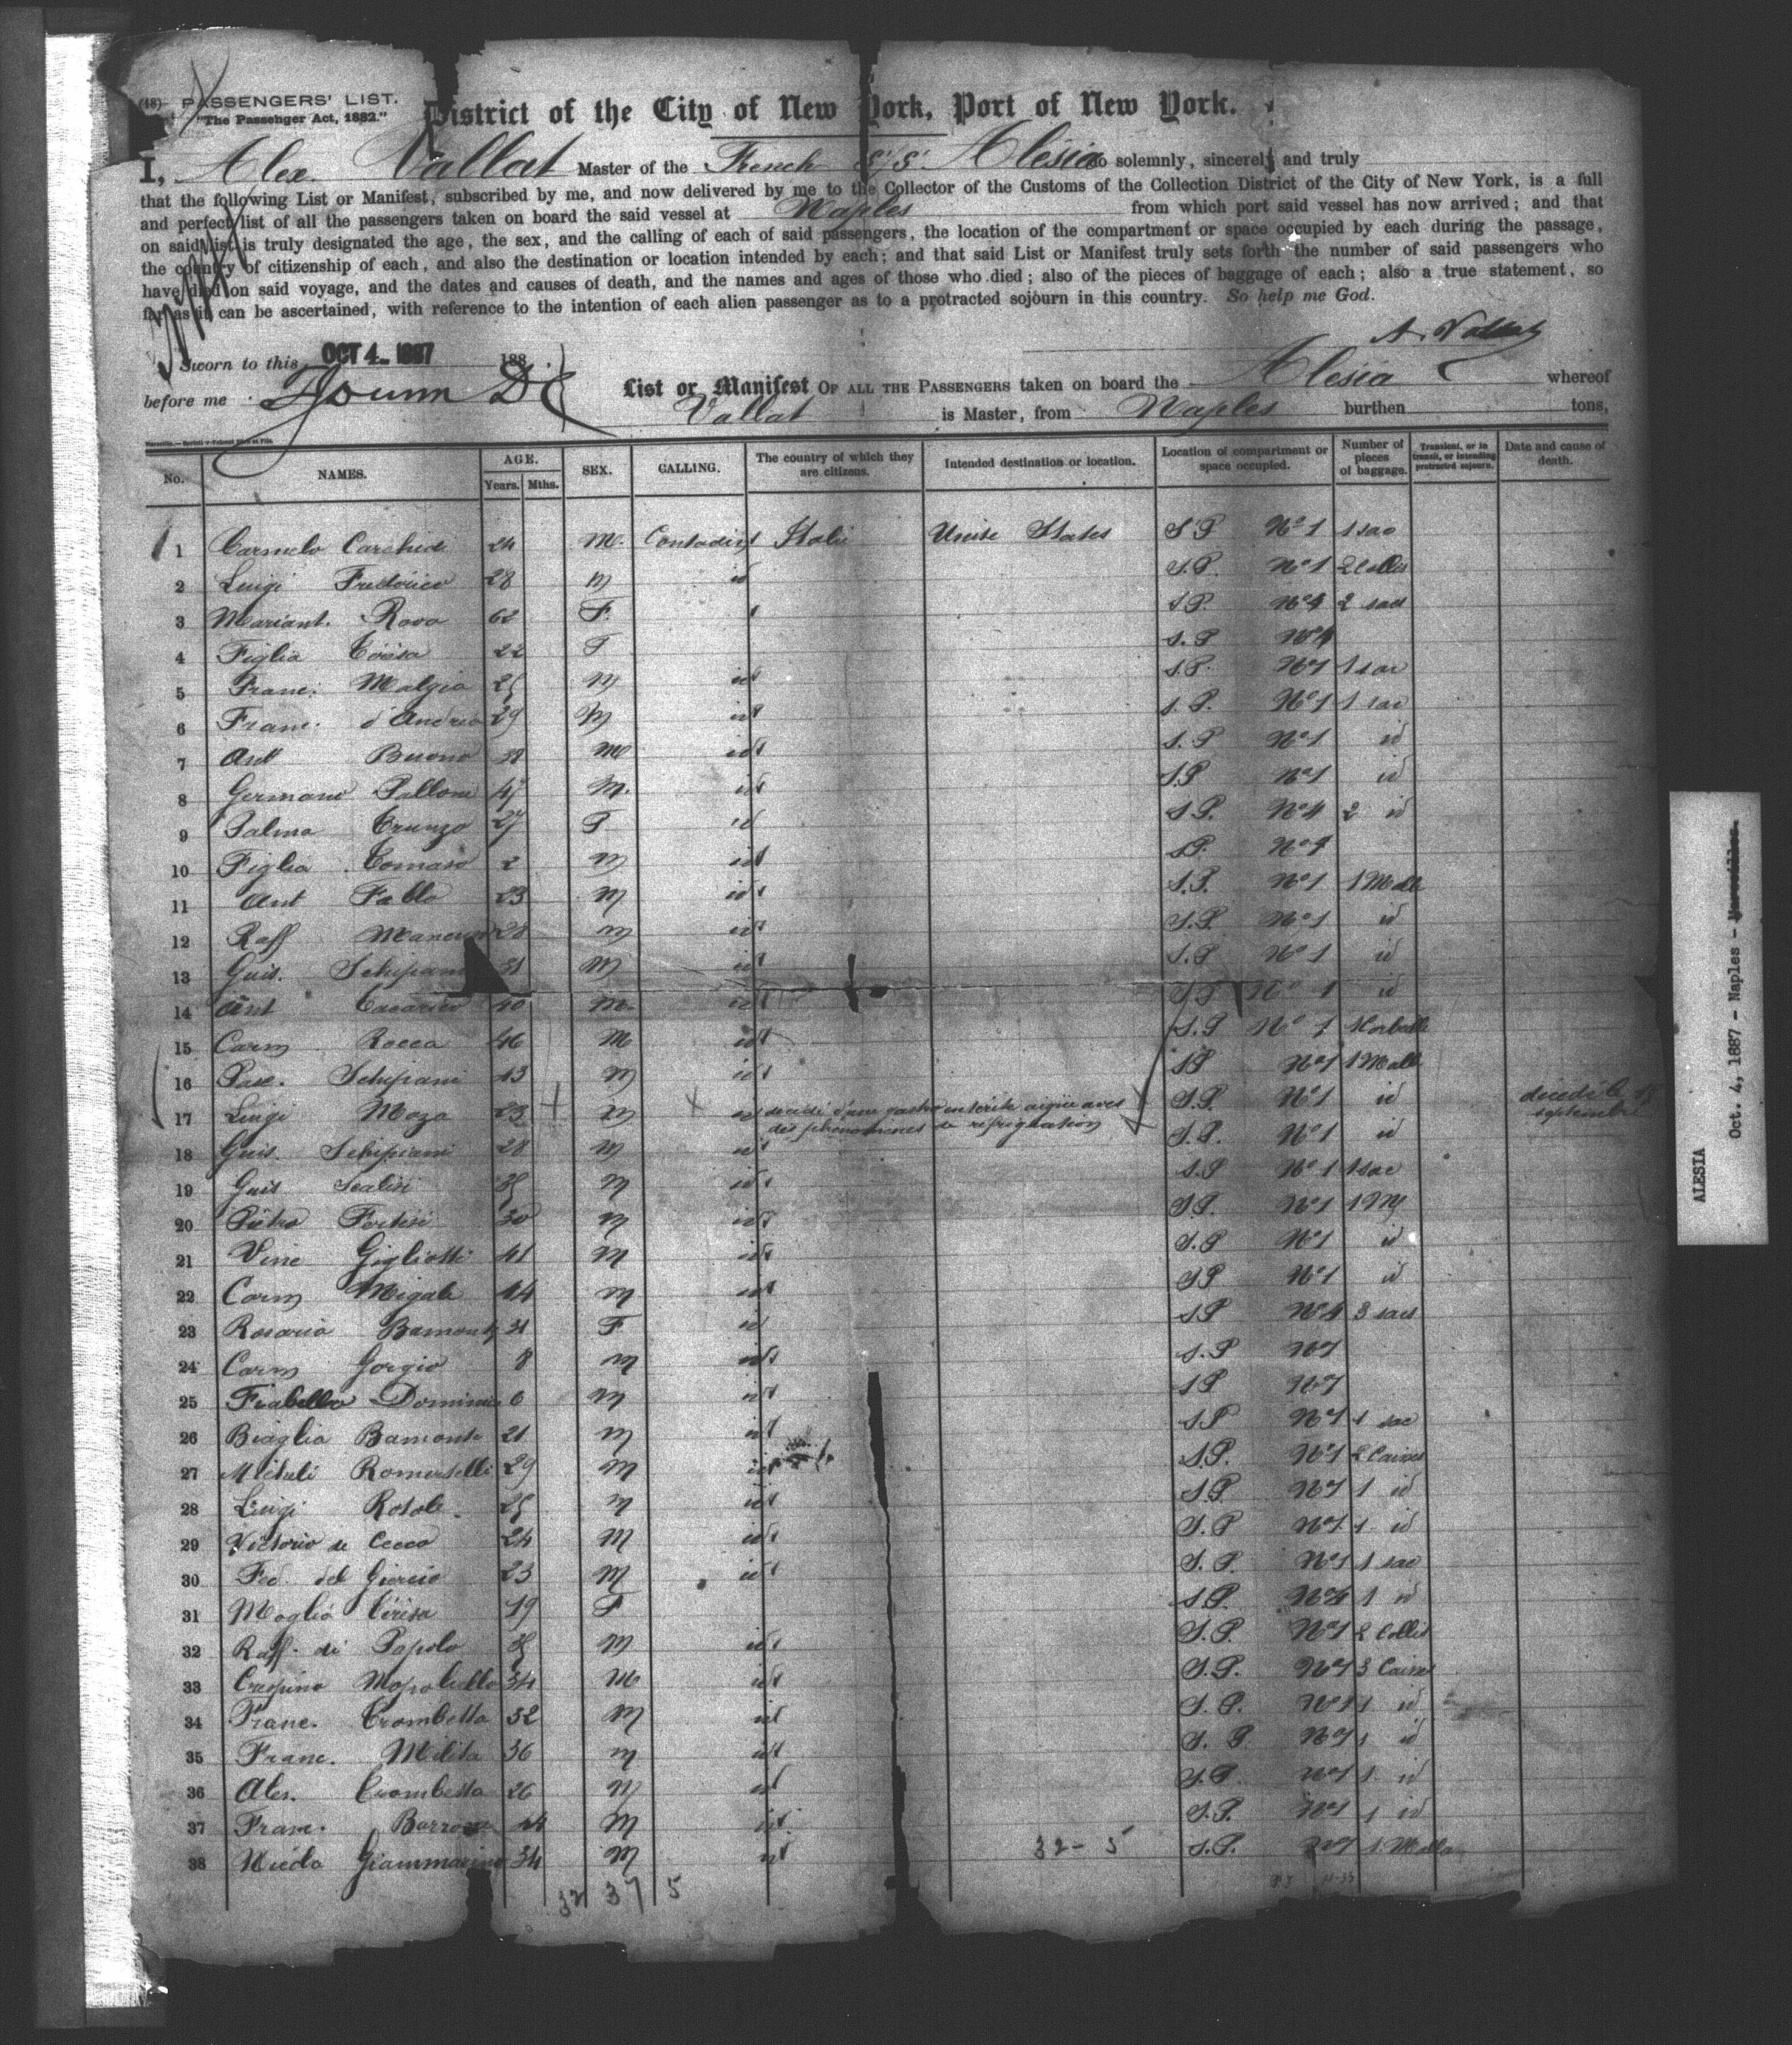 (48) PASSENGERS' LIST.
"The Passenger Act, 1882."
District of the City of New York, Port of New York.
I, Alex. Vallat Master of the French S/S. Alésia do solemnly, sincerely and truly
that the following List or Manifest, subscribed by me, and now delivered by me to the Collector of the Customs of the Collection District of the City of New York, is a full
and perfect list of all the passengers taken on board the said vessel at Naples from which port said vessel has now arrived; and that
on said list is truly designated the age, the sex, and the calling of each of said passengers, the location of the compartment or space occupied by each during the passage,
the country of citizenship of each, and also the destination or location intended by each; and that said List or Manifest truly sets forth the number of said passengers who
have died on said voyage, and the dates and causes of death, and the names and ages of those who died; also of the pieces of baggage of each; also a true statement, so
far as it can be ascertained, with reference to the intention of each alien passenger as to a protracted sojourn in this country. So help me God.
A. Vallat
Sworn to this OCT 4 - 1887 188
before me
List or Manifest OF ALL THE PASSENGERS taken on board the Alesia whereof
Vallat is Master, from Naples burthen tons,
No. NAMES. AGE. Years. Mths. SEX. CALLING. The country of which they are citizens. Intended destination or location. Location of compartment or space occupied. Number of pieces of baggage. Transient, or in transit, or intending protracted sojourn. Date and cause of death.
1 Carmelo Carchidi 24 M. Contadini Italie Unite States S P No 1 1 sac
2 Luigi Frederico 28 M id S.P. No 1 2 Collis
3 Mariant. Rava 62 F. S P. No 4 2 sacs
4 Figlia 22 F S. P No 4
5 Franc. Malgia 25 M id S.P. No 1 1 sac
6 Franc. d'Andrea 29 M id S. P. No 1 1 sac
7 Ant Buono M id S. P No 1 id
8 Germano Pallone 47 M. id S.P No 1 id
9 Palma Trunzo 27 F id S.P. No 4 2 id
10 Figlia Tomaso 2 M id S P. No
11 Ant Fabla 23 M id S.P. No 1 1 Malle
12 Raff Mancuso 28 M id S.P. No 1 id
13 Guis. Schipani 31 M id S.P No 1 id
14 Ant 40 M. id S P No 1 id
15 Carm Rocca 46 M id S.P No 1
16 Pasc. Schipani 43 M id S P No 1 1 Malle
17 Luigi Maza 23 M id décédé d'une gastro entérite aigüe avec des phénomènes de réfrigération S.P. No 1 id décédé le 18 septembre
18 Guis. Schipani 28 M id S.P. No 1 id
19 Guis Scalisi M id S.P No 1 1 sac
20 Pietro 30 M id S P. No 1 1 M
21 Vinc Gigliotti 41 M id S.P No 1 id
22 Carm Migale 44 M id S P No 1 id
23 Rosaria Bamonte 31 F id S P No 4 3 sacs
24 Carm Gorgio 8 M id S.P No
25 Domini 6 M id S P No
26 Biaglia Bamonte 21 M id S P No 1 1 sac
27 Micheli Romertelli 29 M id S.P. No 1 2 Caisses
28 Luigi Rotolo 25 M id S P. No 1 1 id
29 Victorio de Cecco 24 M id S. P No 1 1 id
30 Fed. del 23 M id S. P. No 1 1 sac
31 Maglia 19 F S P. No 4 1 id
32 Raff. di Papolo M id S. P. No 1 2 Collis
33 Crespino 34 M id S. P. No 1 3 Caisses
34 Franc. Trombetta 32 M id S. P. No 1 1 id
35 Franc. Milita 36 M id S. P. No 1 1 id
36 Ales. Trombetta 26 M id S P. No 1 1 id
37 Franc. 44 M id S. P. No 1 1 id
38 Nicola Giammarino 34 M id 32 - 5 S. P. No 1 1 Malle
32 37 5
ALESIA Oct. 4, 1887 - Naples - Marseilles.